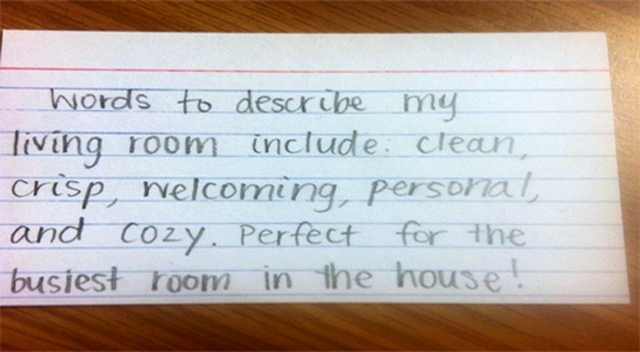 Words to describe my
living room include: clean,
crisp, welcoming, personal,
and cozy. Perfect for the
busiest room in the house!